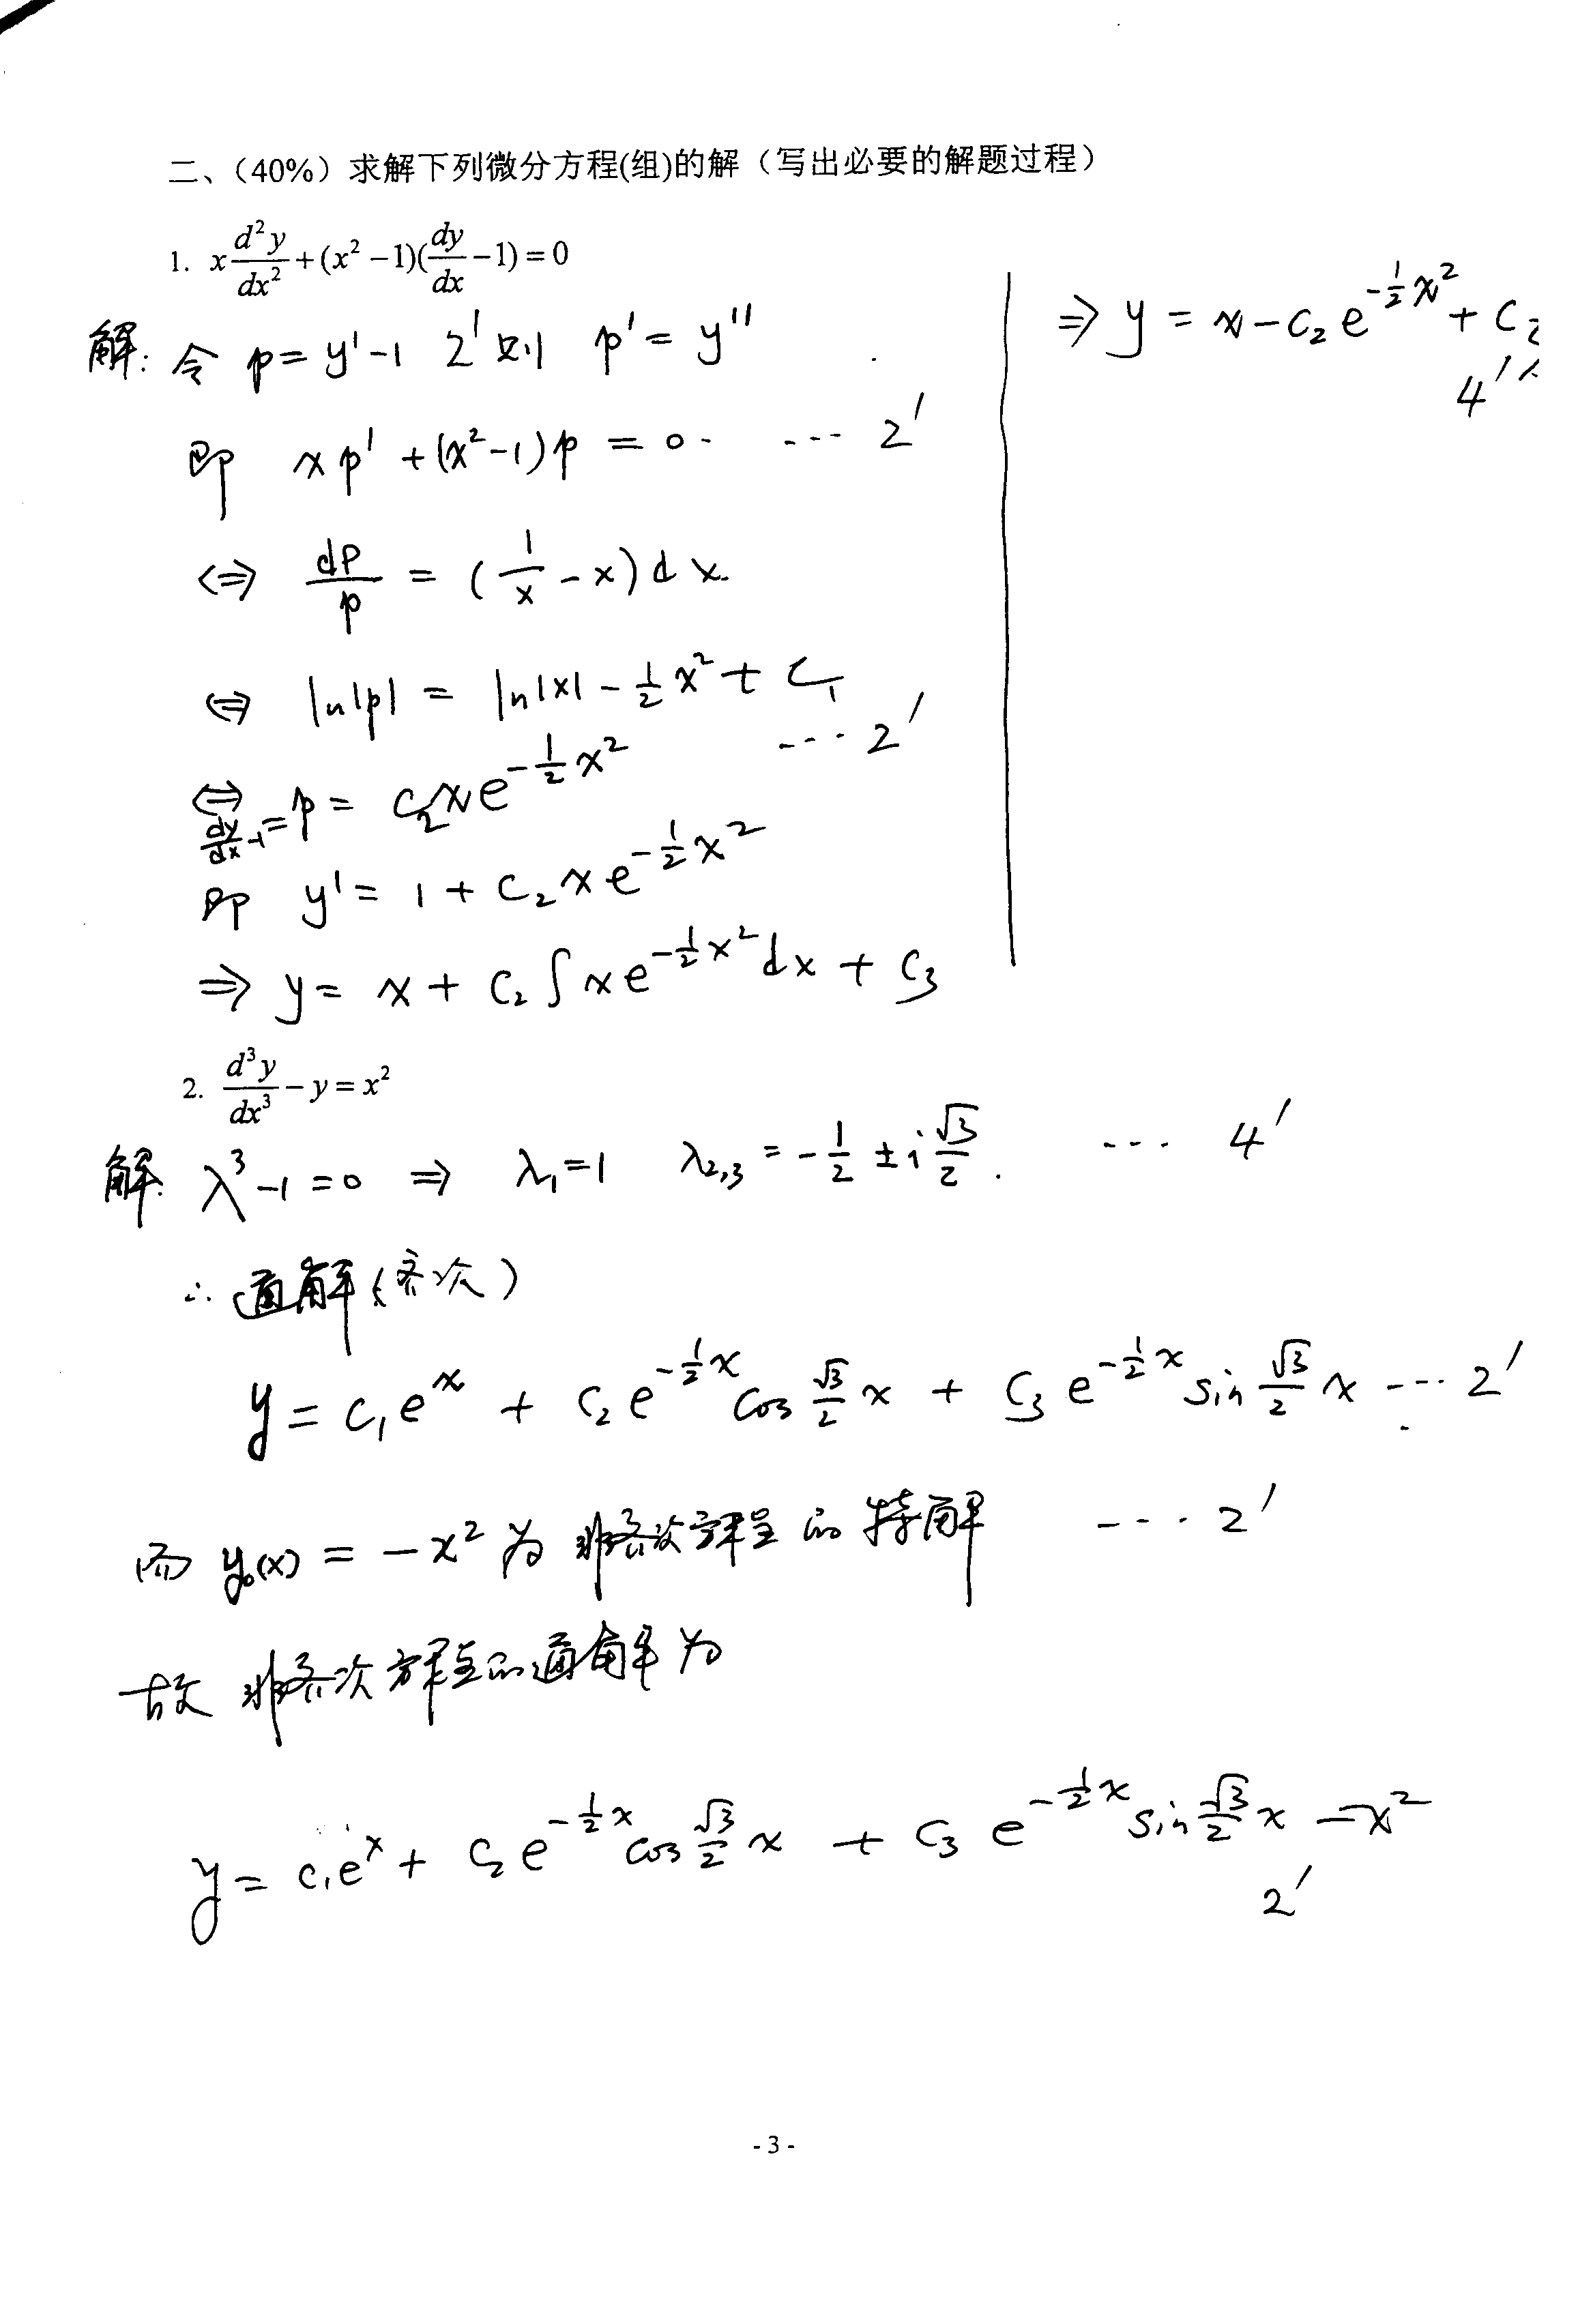 二、（40%）求解下列微分方程(组)的解（写出必要的解题过程）
1. x d²y/dx² + (x² −1)(dy/dx −1) = 0
解: 令 p = y' −1 2' 则 p' = y''
即 xp' + (x²−1)p = 0. --- 2'
⇔ dp/p = (1/x − x)dx.
⇔ ln|p| = ln|x| − 1/2 x² + C₁
--- 2'
⇔ dy/dx −1 = p = C₂xe^(−1/2 x²)
即 y' = 1 + C₂xe^(−1/2 x²)
⇒ y = x + C₂∫xe^(−1/2 x²)dx + C₃
⇒ y = x − C₂e^(−1/2 x²) +
4'
2. d³y/dx³ − y = x²
解: λ³−1=0 ⇒ λ₁=1 λ₂,₃ = −1/2 ± i √3/2. --- 4'
∴ 通解(齐次)
y = C₁e^x + C₂e^(−1/2 x) cos √3/2 x + C₃e^(−1/2 x) sin √3/2 x --- 2'
而 y₀(x) = −x² 为 非齐次方程 的 特解 --- 2'
故 非齐次方程的通解为
y = C₁e^x + C₂e^(−1/2 x) cos √3/2 x + C₃e^(−1/2 x) sin √3/2 x − x²
2'
- 3 -